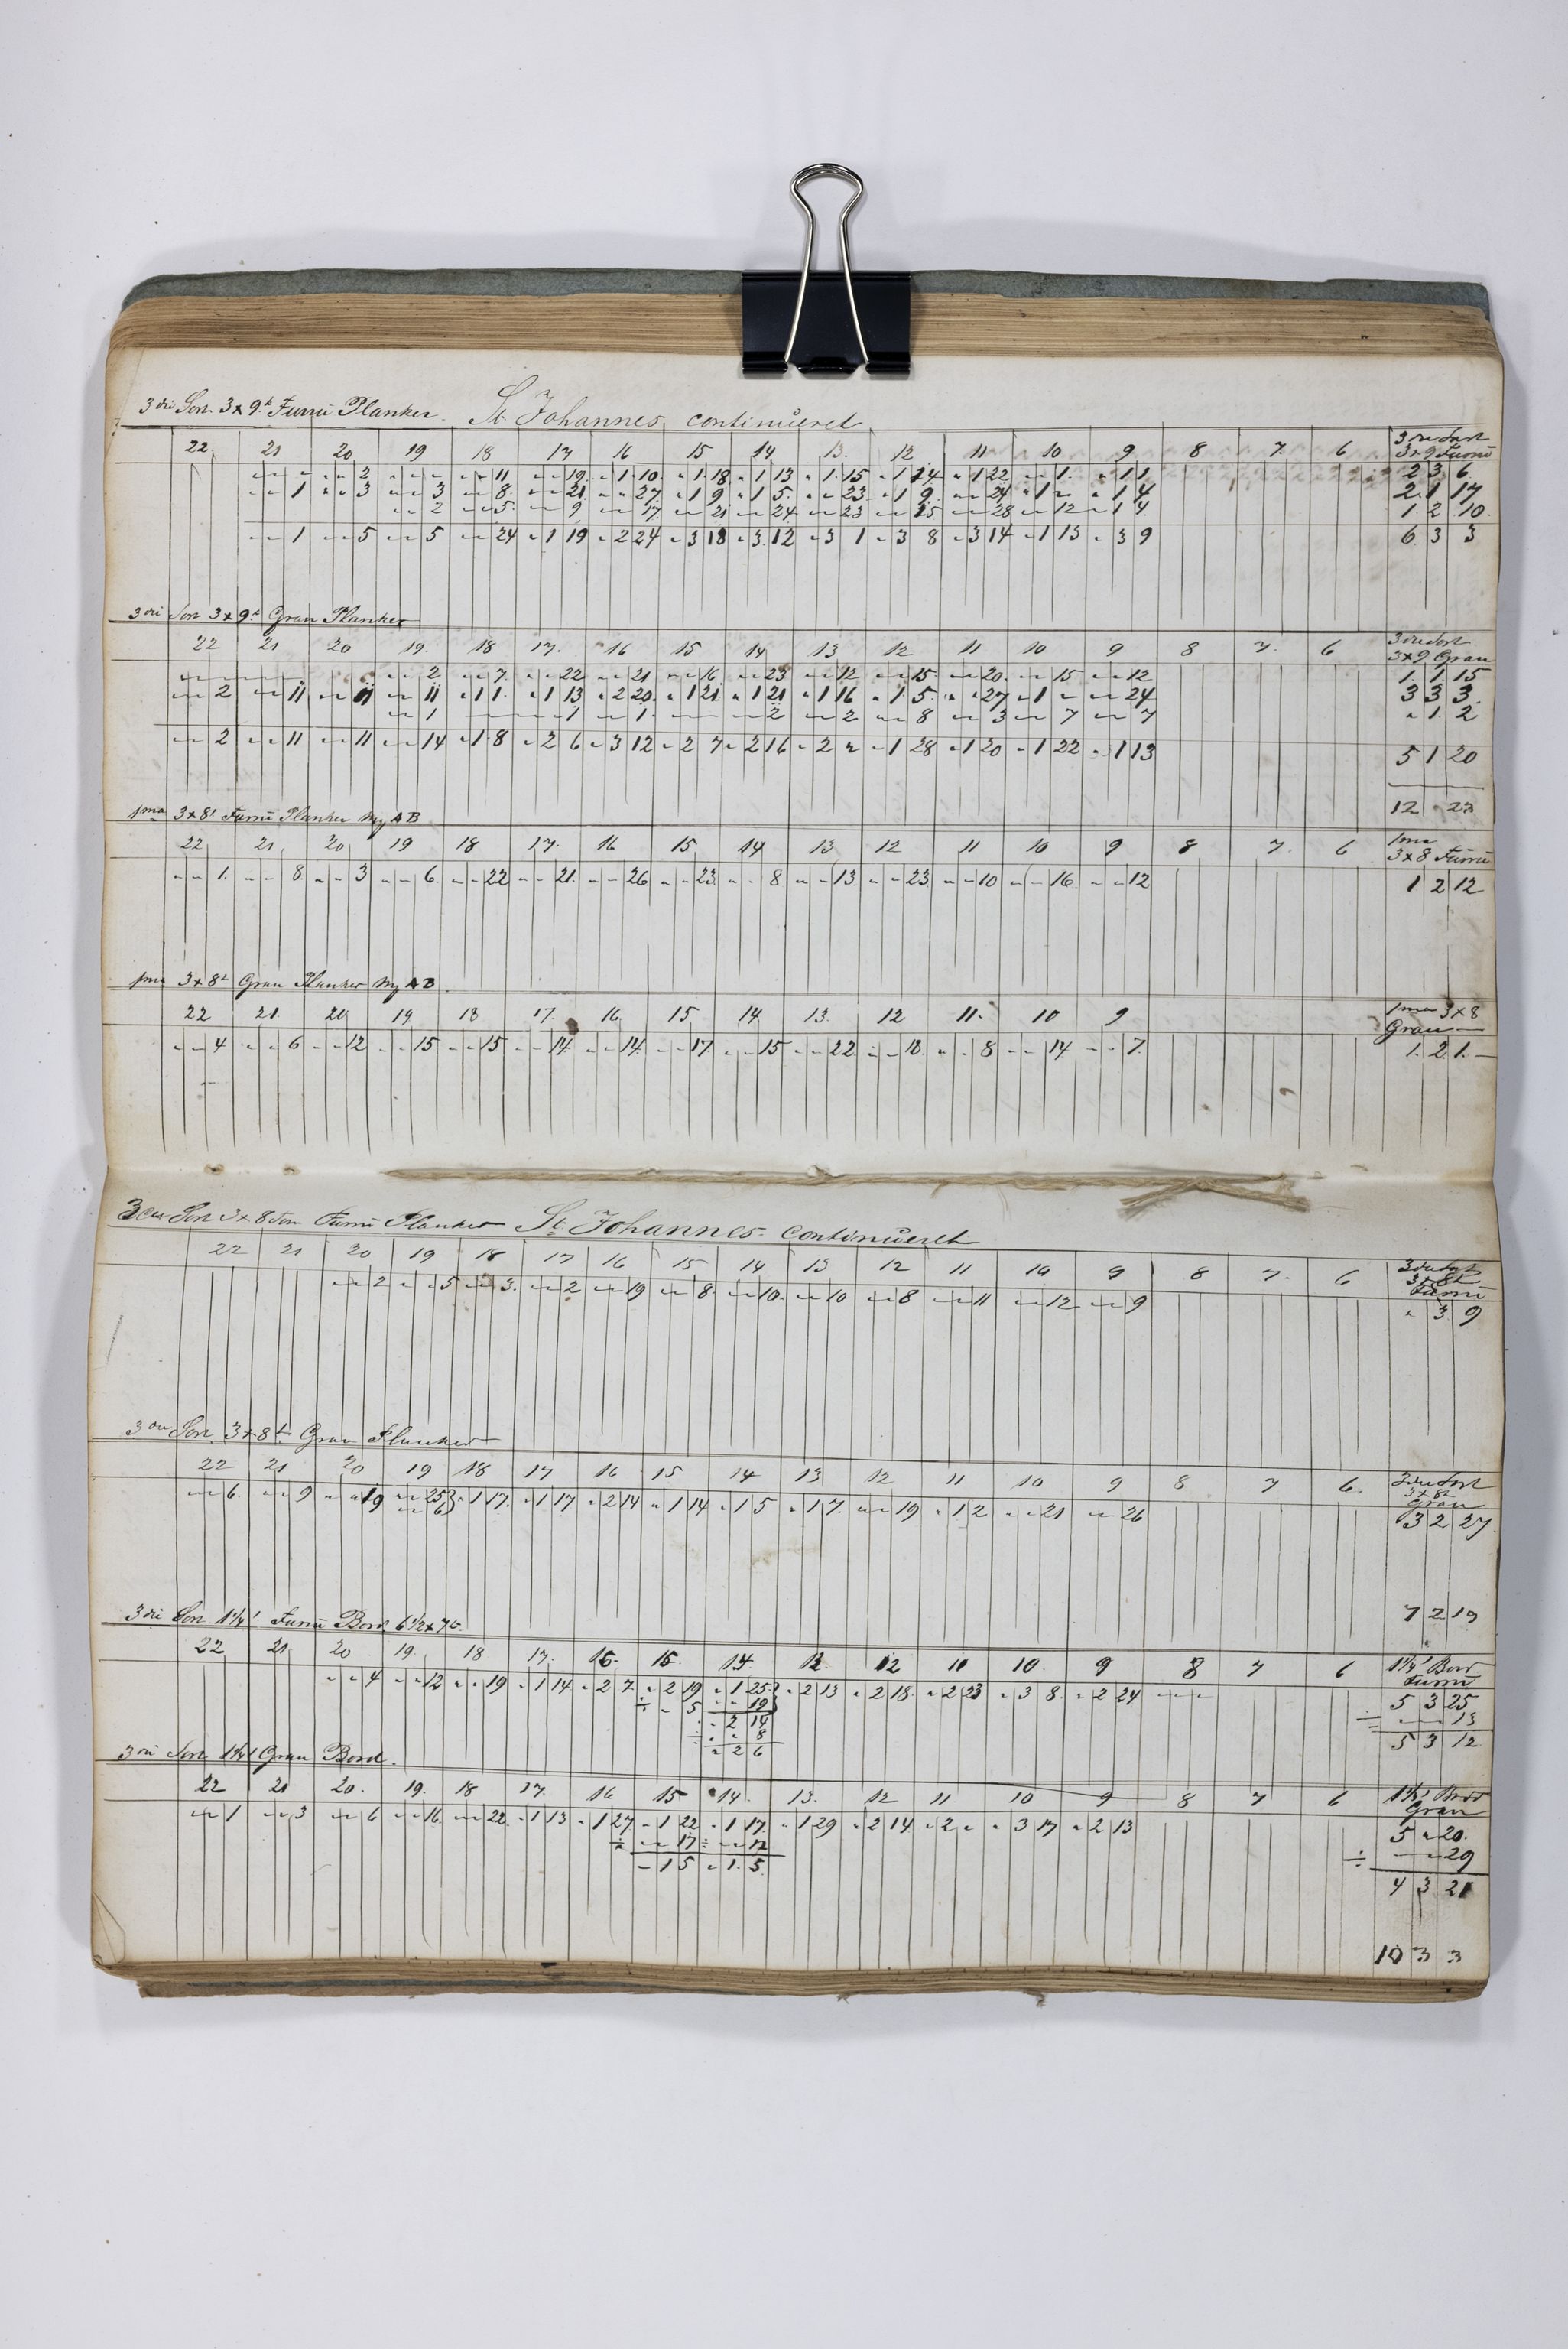 3die Sort 3x9t Furru Planker. St. Johannes continueret
22 21 20 19 18 17 16 15 14 13 12 11 10 9 8 7 6 3die Sort 3x9 Furru
" " " " " 2 " " " " " 11 " " 19 " 1 10 " 1 18 " 1 13 " 1 15 " 1 24 " 1 22 " 1 " " 1 1 2 3 6
" " 1 " " 3 " " 3 " " 8 " " 21 " " 27 " 1 9 " 1 5 " " 23 " 1 9 " " 24 " 1 " " 1 4 2 1 17
" " 2 " " 5 " " 9 " " 17 " " 21 " " 24 " " 23 " " 25 " " 28 " " 12 " 1 4 1 2 10
" " 1 " " 5 " " 5 " " 24 " 1 19 " 2 24 " 3 18 " 3 12 " 3 1 " 3 8 " 3 14 " 1 13 " 3 9 6 3 3
3die Sort 3x9t Gran Planker
22 21 20 19 18 17 16 15 14 13 12 11 10 9 8 7 6 3die Sort 3x9 Gran
" " 2 " " 7 " " 22 " " 21 " " 16 " " 23 " " 12 " " 15 " " 20 " " 15 " " 12 1 1 15
" " 2 " " 11 " " 11 " " 11 " 1 1 " 1 13 " 2 20 " 1 21 " 1 21 " 1 16 " 1 5 " " 27 " 1 " " " 24 3 3 3
" " 1 " " 1 " " 1 " " 2 " " 2 " " 8 " " 3 " " 7 " " 7 " 1 2
" " 2 " " 11 " " 11 " " 14 " 1 8 " 2 6 " 3 12 " 2 7 " 2 16 " 2 " " 1 28 " 1 20 " 1 22 " 1 13 5 1 20
12 " 23
1ma 3x8t Furru Planker My AB
22 21 20 19 18 17 16 15 14 13 12 11 10 9 8 7 6 1ma 3x8 Furru
" " 1 " " 8 " " 3 " " 6 " " 22 " " 21 " " 26 " " 23 " " 8 " " 13 " " 23 " " 10 " " 16 " " 12 1 2 12
1ma 3x8t Gran Planker My AB
22 21 20 19 18 17 16 15 14 13 12 11 10 9 1ma 3x8 Gran
" " 4 " " 6 " " 12 " " 15 " " 15 " " 14 " " 14 " " 17 " " 15 " " 22 " " 18 " " 8 " " 14 " " 7 1 2 1
Sort 3x8 Furru Planker St. Johannes continueret
22 21 20 19 18 17 16 15 14 13 12 11 10 9 8 7 6 3die Sort 3x8t Furru
" " 2 " " 5 " " 3 " " 2 " " 19 " " 8 " " 10 " " 10 " " 8 " " 11 " " 12 " " 9 " 3 9
Sort 3x8t Gran Planker
22 21 20 19 18 17 16 15 14 13 12 11 10 9 8 7 6 3die Sort 3x8t Gran
" " 6 " " 9 " " 19 " " 25 " 1 17 " 1 17 " 2 14 " 1 14 " 1 5 " 1 7 " " 19 " 1 2 " " 21 " " 26 3 2 27
" " 6
7 2 19
3die Sort 1¼t Furru Bord 6½x7t
22 21 20 19 18 17 16 15 14 13 12 11 10 9 8 7 6 1¼t Bord Furru
" " 4 " " 12 " " 19 " 1 14 " 2 7 " 2 19 " 1 25 " 2 13 " 2 18 " 2 23 " 3 8 " 2 24 " " 5 3 25
÷ " 5 " " 19 ÷ " 13
" 2 14 5 3 12
÷ " " 8
" 2 6
3die Sort 1¼t Gran Bord.
22 21 20 19 18 17 16 15 14 13 12 11 10 9 8 7 6 1¼t Bord Gran
" " 1 " " 3 " " 6 " " 16 " " 22 " 1 13 " 1 27 " 1 22 " 1 17 " 1 29 " 2 14 " 2 " " 3 17 " 2 13 5 " 20
÷ " " 17 ÷ " " 12 ÷ " " 29
" 1 5 " 1 5 4 3 21
10 3 3